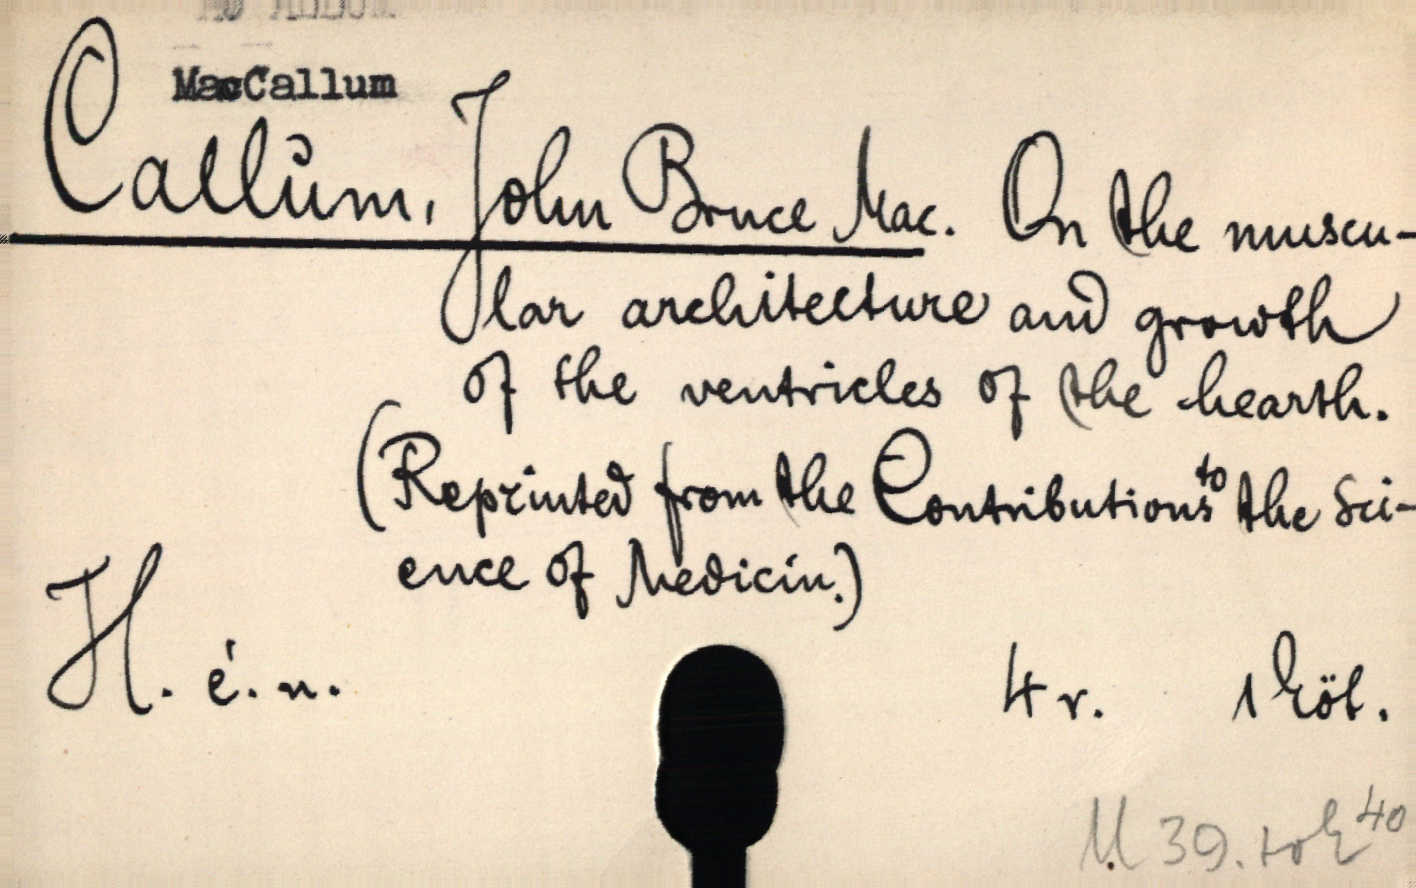 MacCallum
Callum, John Bruce Mac. On the muscu-
lar architecture and growth
of the ventricles of the hearth.
(Reprinted from the Contributions to the Sci-
ence of Medicin.)
H. é. n.
4 r. 1 köt.
M 39.